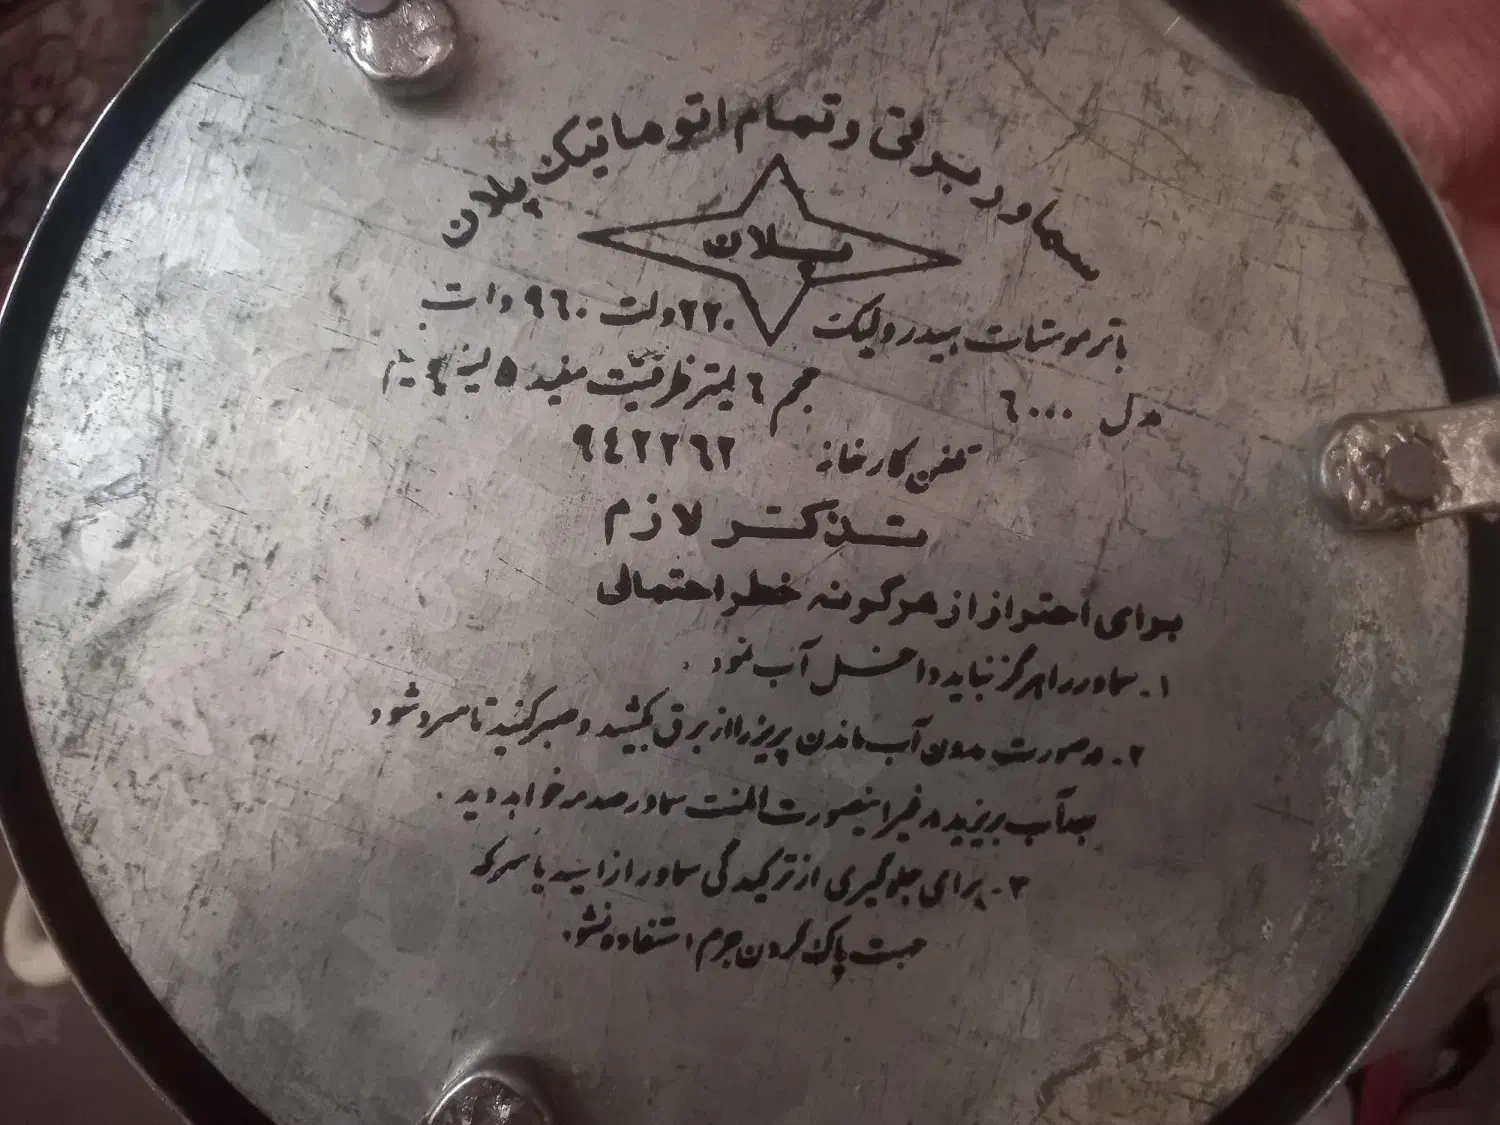 سماور برقی و تمام اتوماتیک پلان
پلان
با ترموستات هیدرولیک ۲۲۰ ولت ۹۶۰ وات
مدل ۶۰۰۰ حجم ۶ لیتر ظرفیت مفید ۵ لیتر
تلفن کارخانه ۹۴۲۲۶۲
تذکر لازم
برای احتراز از هرگونه خطر احتمالی
۱- سماور را هرگز نباید داخل آب نمود .
۲- در صورت بدون آب ماندن پریز را از برق بکشید و صبر کنید تا سرد شود
بعد آب بریزید در غیر اینصورت المنت سماور صدمه خواهد دید .
۳- برای جلوگیری از ترکیدگی سماور از اسید یا سرکه
جهت پاک کردن جرم استفاده نشود.